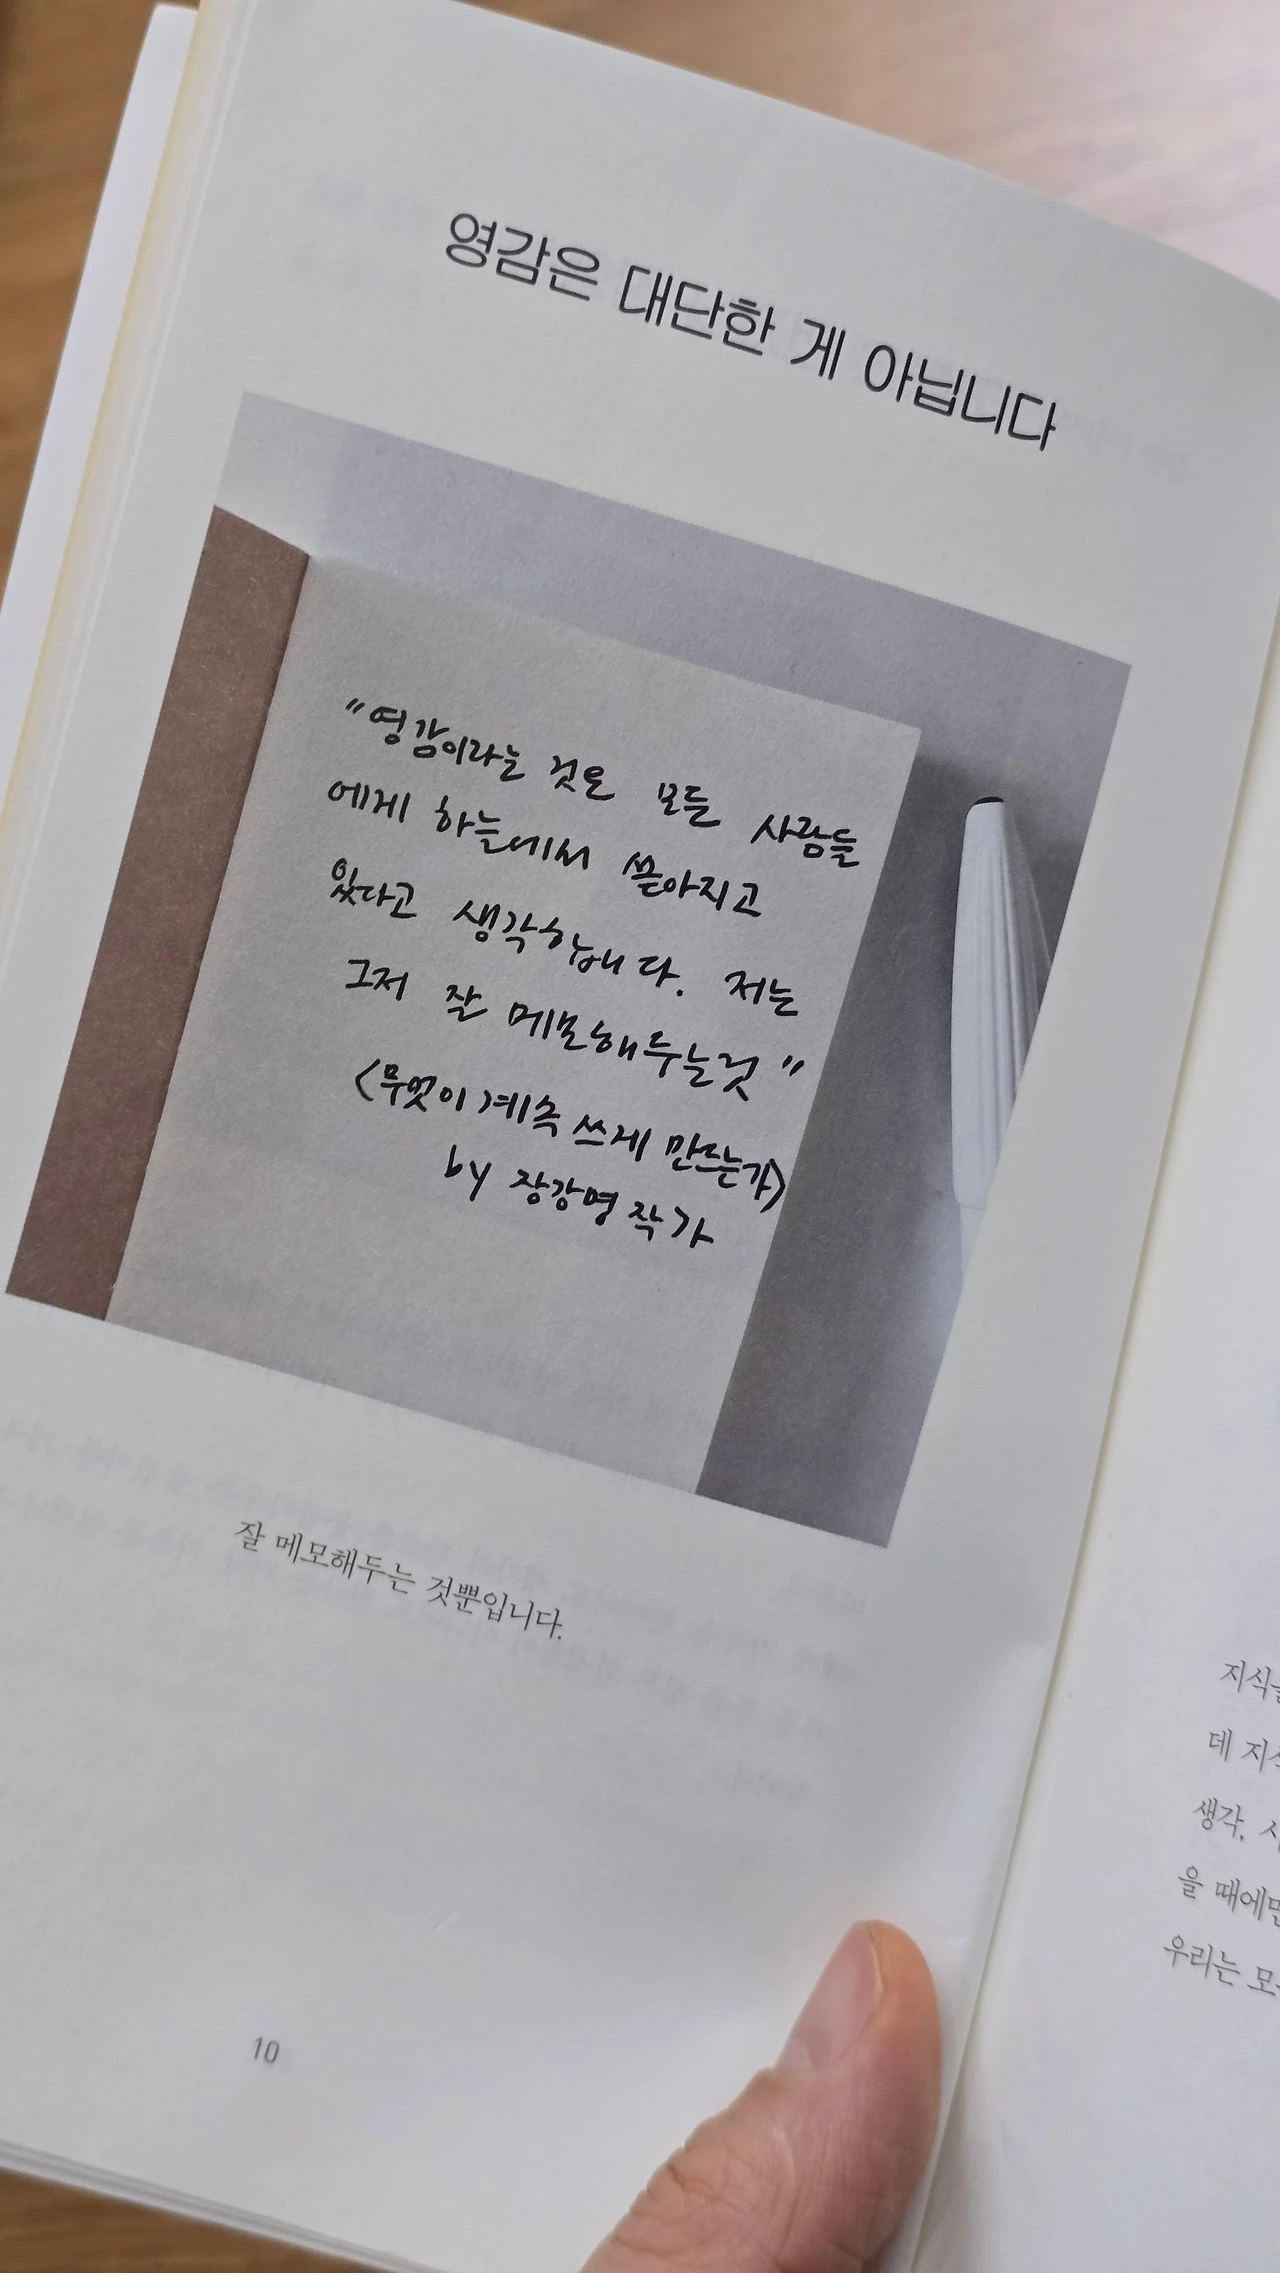 영감은 대단한 게 아닙니다
"영감이라는 것은 모든 사람들
에게 하늘에서 쏟아지고
있다고 생각합니다. 저는
그저 잘 메모해두는것"
<무엇이 계속 쓰게 만드는가>
by 장강명 작가
잘 메모해두는 것뿐입니다.
10
데
생각,
을 때에만
우리는